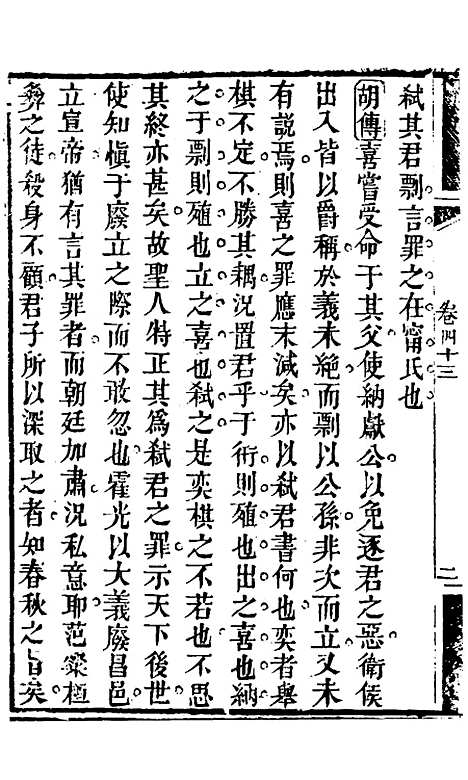 卷四十三
二
弑其君剽言罪之在甯氏也
胡傳喜嘗受命于其父使納獻公以免逐君之惡衛侯
出入皆以爵稱於義未絶而剽以公孫非次而立又未
有説焉則喜之罪應末減矣亦以弑君書何也奕者舉
棋不定不勝其耦況置君乎于術則殖也出之喜也納
之于剽則殖也立之喜也弑之是奕棋之不若也不思
其終亦甚矣故聖人特正其爲弑君之罪示天下後世
使知愼于廢立之際而不敢忽也霍光以大義廢昌邑
立宣帝猶有言其罪者而朝廷加肅況私意耶范粲桓
彜之徒殺身不顧君子所以深取之者知春秋之旨矣